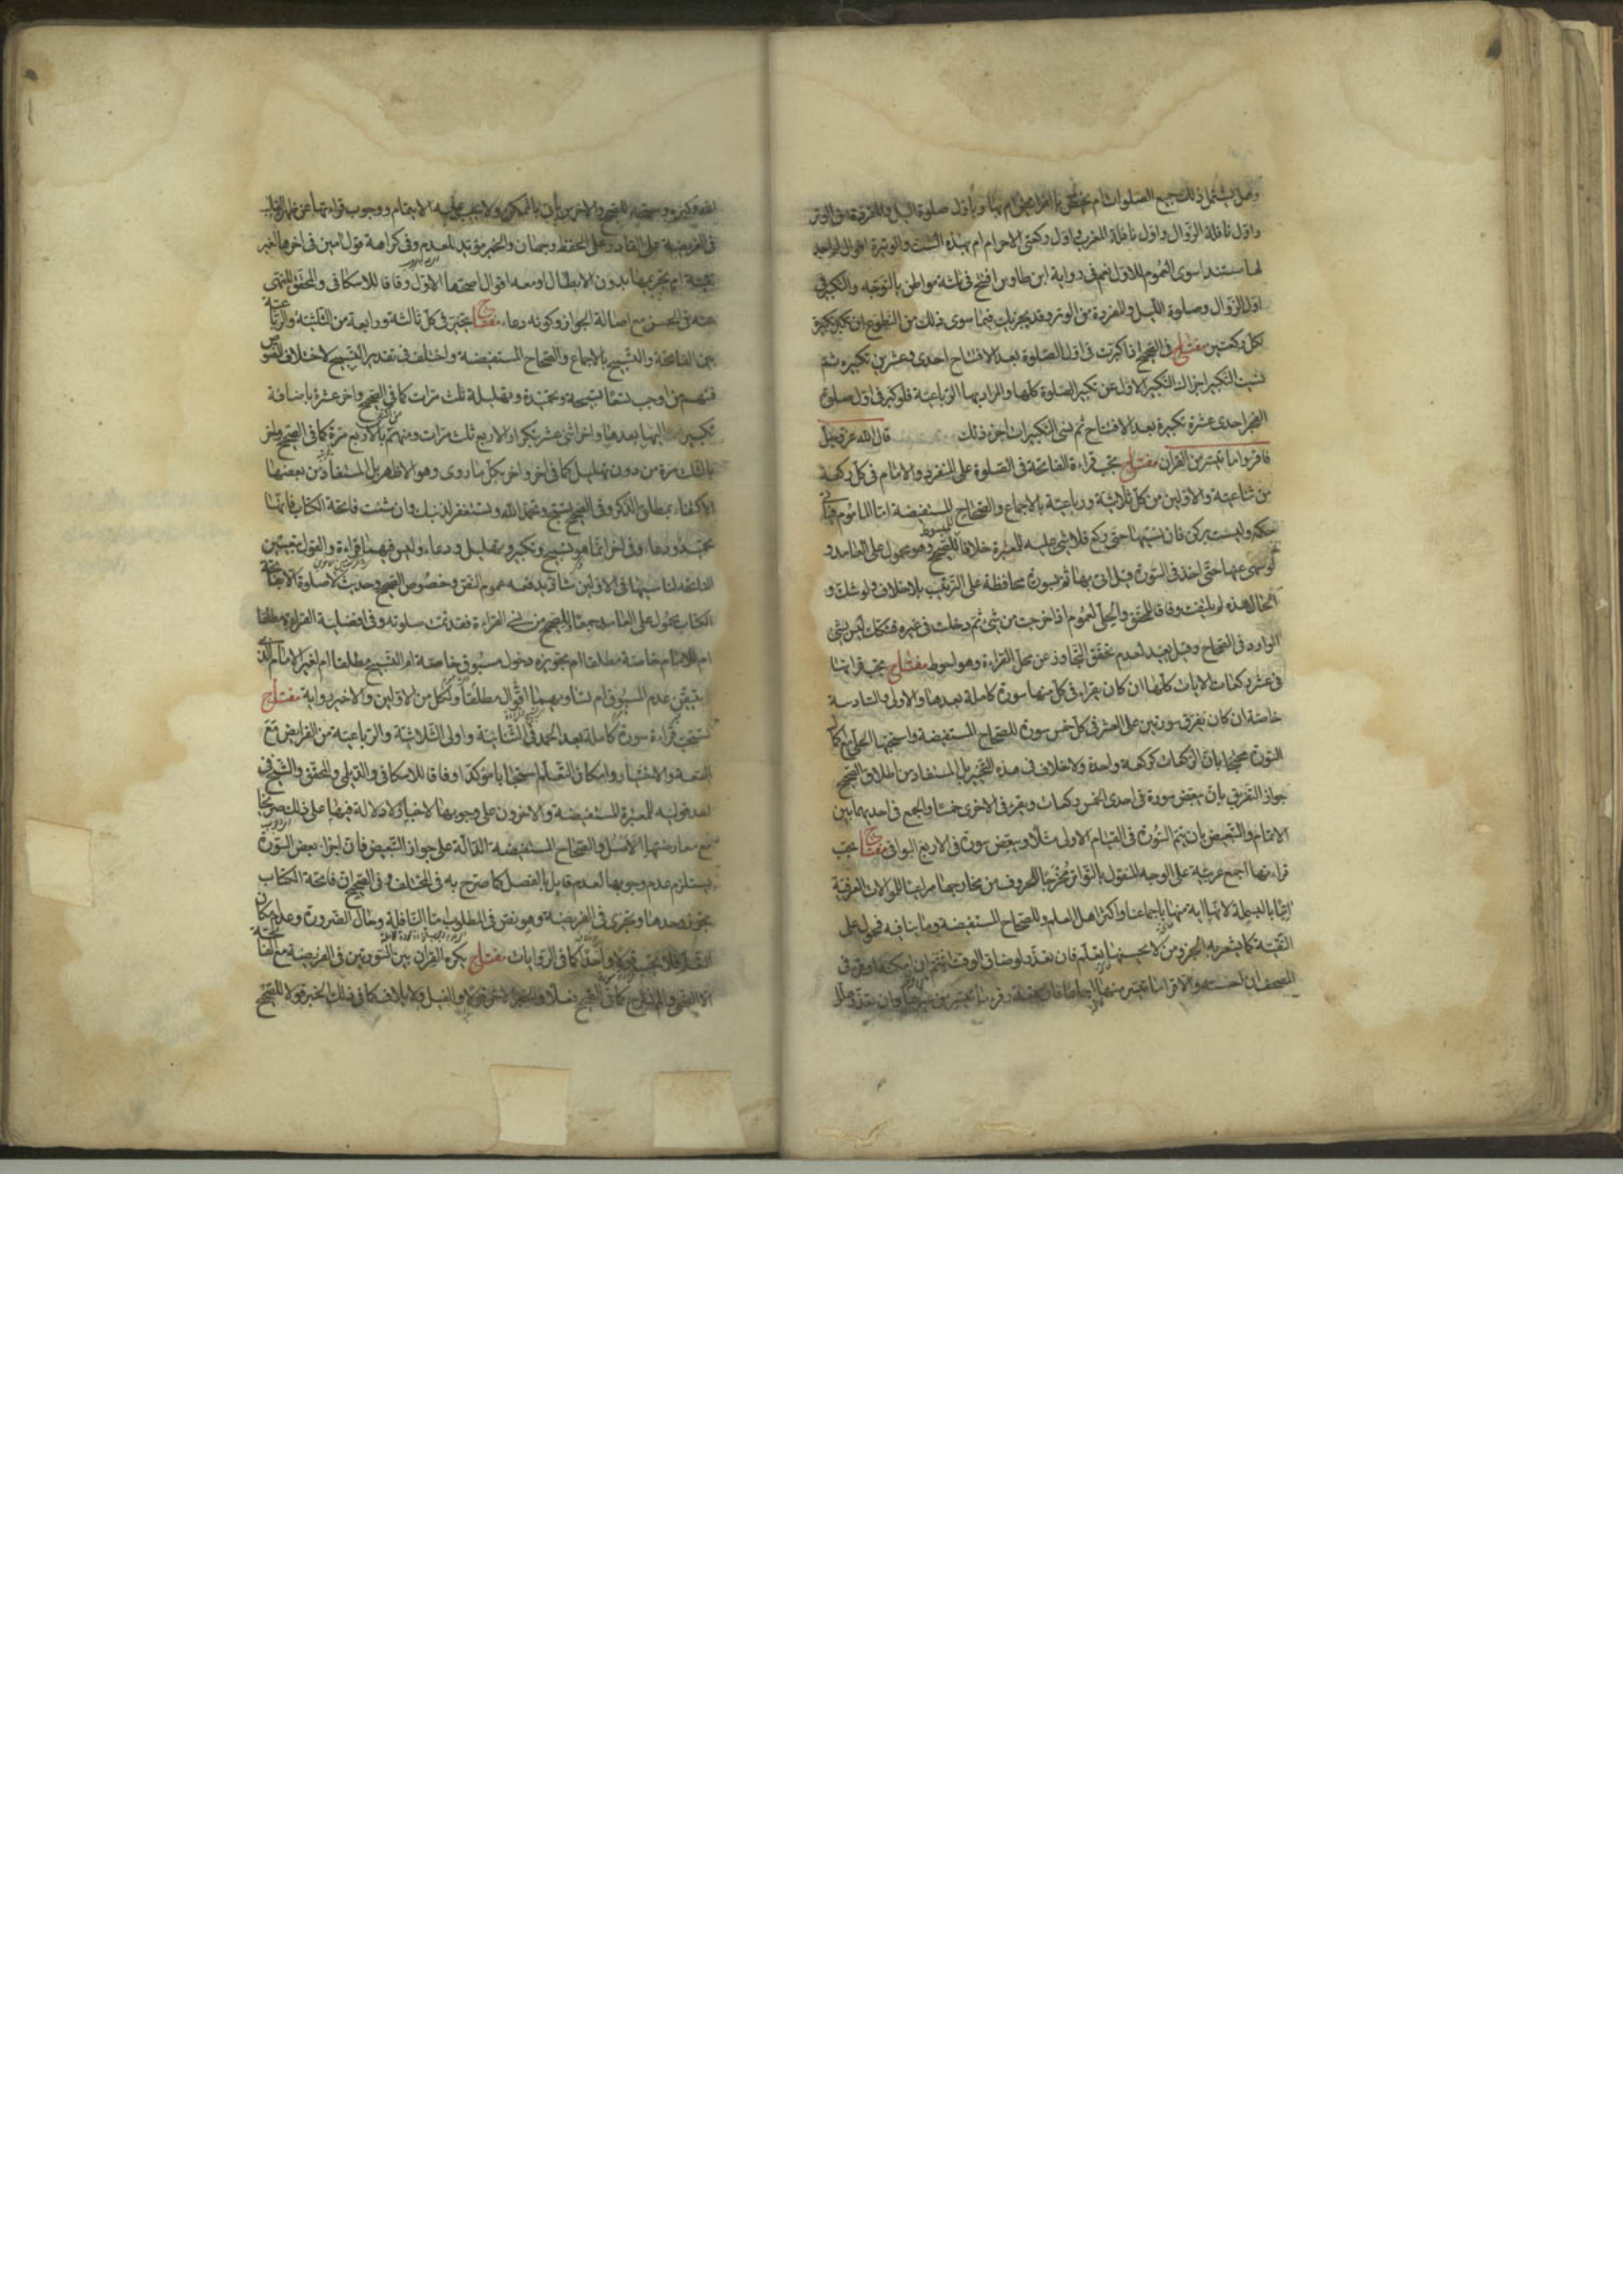 وهل يشمل ذلك جميع الصلوات ام يختص بالفرايض ام بها وباول صلوة الليل والمفردة من الوتر
واول نافلة الزوال واول نافلة المغرب واول ركعتي الاحرام ام بهذه الست والوتيرة اقوال لم اجد
لها مستندا سوى العموم للاول نعم في رواية ابن طاوس افتتح في ثلثة مواطن بالتوجه والتكبير في
اول الزوال وصلوة الليل والمفردة من الوتر وقد يجزيك فيما سوى ذلك من التطوع ان تكبر تكبيرة
لكل ركعتين مفتاح في الصحيح اذا كبرت في اول الصلوة بعد الافتتاح احدى وعشرين تكبيرة ثم
نسيت التكبير اجزاك التكبير الاول عن تكبير الصلوة كلها والمراد بها الرباعية فلو كبر في اول صلوة
الفجر احدى عشرة تكبيرة بعد الافتتاح ثم نسي التكبيرات اجزء ذلك قال الله عز وجل
فاقرؤا ما تيسر من القران مفتاح يجب قراءة الفاتحة في الصلوة على المنفرد والامام في كل ركعة
من ثنائية والاوليين من كل ثلاثية ورباعية بالاجماع والصحاح المستفيضة اما الماموم فياتي
حكمه وليست بركن فان نسيها حتى ركع فلا شئ عليه للمعتبرة خلافا للمبسوط للصحيح وهو محمول على العامد و
لو سهى عنها حتى اخذ في السورة قبل اتى بها ثم بسورة محافظة على الترتيب بلا خلاف ولو شك و
الحال هذه لم يلتفت وفاقا للمحقق والحلي لعموم اذا خرجت من شئ ثم دخلت في غيره فشكك ليس بشئ
الوارد في الصحاح وقيل يعيد لعدم تحقق التجاوز عن محل القراءة وهو احوط مفتاح يجب قراءتها
في عشر ركعات الايات كلها ان كان يقراء في كل منها سورة كاملة بعدها والاولى والسادسة
خاصة ان كان يفرق سورتين على العشر في كل خمس سورة للصحاح المستفيضة واستحبها الحلي مع اكمال
السورة محتجا بان الركعات كركعة واحدة ولا خلاف في هذه التخيير بل المستفاد من اطلاق الصحيح
جواز التفريق بان يبعض سورة في احدى الخمس ركعات ويقرء في الاخرى خمسا والجمع في احديهما بين
الاتمام والتبعيض بان يتم السورة في القيام الاولى مثلا ويبعض سورة في الاربع البواقي مفتاح يجب
قراءتها اجمع عربية على الوجه المنقول بالتواتر مخرجا للحروف من مخارجها مراعيا للموالات العرفية
اتيا بالبسملة لانها اية منها باجماعنا واكثر اهل العلم وللصحاح المستفيضة وما ينافيه فمحمول على
التقية كما يشعر به الخبر ومن لا يحسنها يتعلم فان تعذر لو ضاق الوقت ائتم ان امكن
المصحف ان احسنه والا قرا ما تيسر منها اجماعا فان تعذر قرء ما تيسر من غيرها وان تعذر
الله وكبره وسبحه للصحيح والاخرس ياتي بالممكن ولا يجب عليه الايتمام ووجوب قراءتها عن ظهر القلب
في الفريضة على القادر وعلى الحفظ وجهان والخبر مؤيد للعدم وفي كراهة قول امين في اخرها لغير
تقية ام تحريمها بدون الابطال او معه اقوال اصحها الاول وفاقا للاسكافي والمحقق للنهي
عنه في الحسن مع اصالة الجواز وكونه دعاء مفتاح يتخير في كل ثالثة ورابعة من الثلثية والرباعية
بين الفاتحة والتسبيح بالاجماع والصحاح المستفيضة واختلف في تقدير التسبيح لاختلاف النصوص
فمنهم من اوجب تسعا تسبيحة وتحميدة وتهليلة ثلث مرات كما في الصحيح واخر عشرة باضافة
تكبيرة اليها بعدها واخر اثنى عشر بتكرار الاربع ثلث مرات ومنهم من اكتفى بالاربع مرة كما في الصحيح واخر
بالثلث مرة من دون تهليل كما في اخر واخر بكل ما روى وهو الاظهر بل المستفاد من بعضها
الاكتفاء بمطلق الذكر وفي الصحيح تسبح وتحمد الله وتستغفر لذنبك وان شئت فاتحة الكتاب فانها
تحميد ودعاء وفي اخر انما هو تسبيح وتكبير وتهليل ودعاء وليس فيهما قراءة والقول بتعيين
الفاتحة لناسيها في الاوليين شاذ يدفعه عموم النص وخصوص الصحيح وحديث لا صلوة الا بفاتحة
الكتاب محمول على العامد جمعا وللصحيح من نسي القراءة فقد تمت صلوته وفي افضلية القراءة مطلقا
ام للامام خاصة مطلقا ام بتجويزه دخول مسبوق خاصة ام التسبيح مطلقا ام لغير الامام الذي
يتيقن عدم المسبوق ام تساويهما اقوال مطلقا ولكل من الاولين والاخير رواية مفتاح
تستحب قراءة سورة كاملة بعد الحمد في الثنائية واولى الثلاثية والرباعية من الفرايض مع
السعة والاختيار وامكان التعلم استحبابا مؤكدا وفاقا للاسكافي والديلمي والمحقق والشيخ في
احد قوليه للمعتبرة المستفيضة والاخرون على وجوبها لاخبار لا دلالة فيها على ذلك صريحا
مع معارضتها الاصل والصحاح المستفيضة الدالة على جواز التبعيض فان اجزاء بعض السورة
يستلزم عدم وجوبها لعدم قايل بالفصل كما صرح به في المختلف وفي الصحيح ان فاتحة الكتاب
تجوز وحدها وتجزى في الفريضة وهو نص في المطلوب اما النافلة وحال الضرورة وعدم امكان
التعلم فلا يجب قولا واحدا كما في الروايات مفتاح يكره القران بين السورتين في الفريضة مع الفاتحة
الا الضحى والم نشرح كما في الصحيح فعلا والخبر الاخر قولا والفيل ولايلاف كما في ذلك الخبر قولا للصحيح